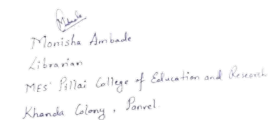 Monisha Ambade
Librarian
MES' Pillai College of Education and Research
Khanda Colony, Panvel